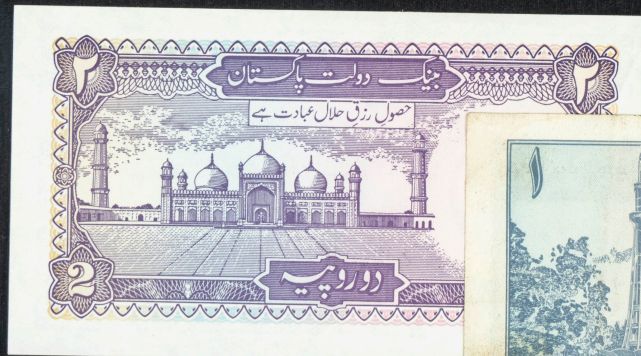 ۲ بینک دولت پاکستان ۲
حصول رزقِ حلال عبادت ہے
۱
2 دو روپیہ